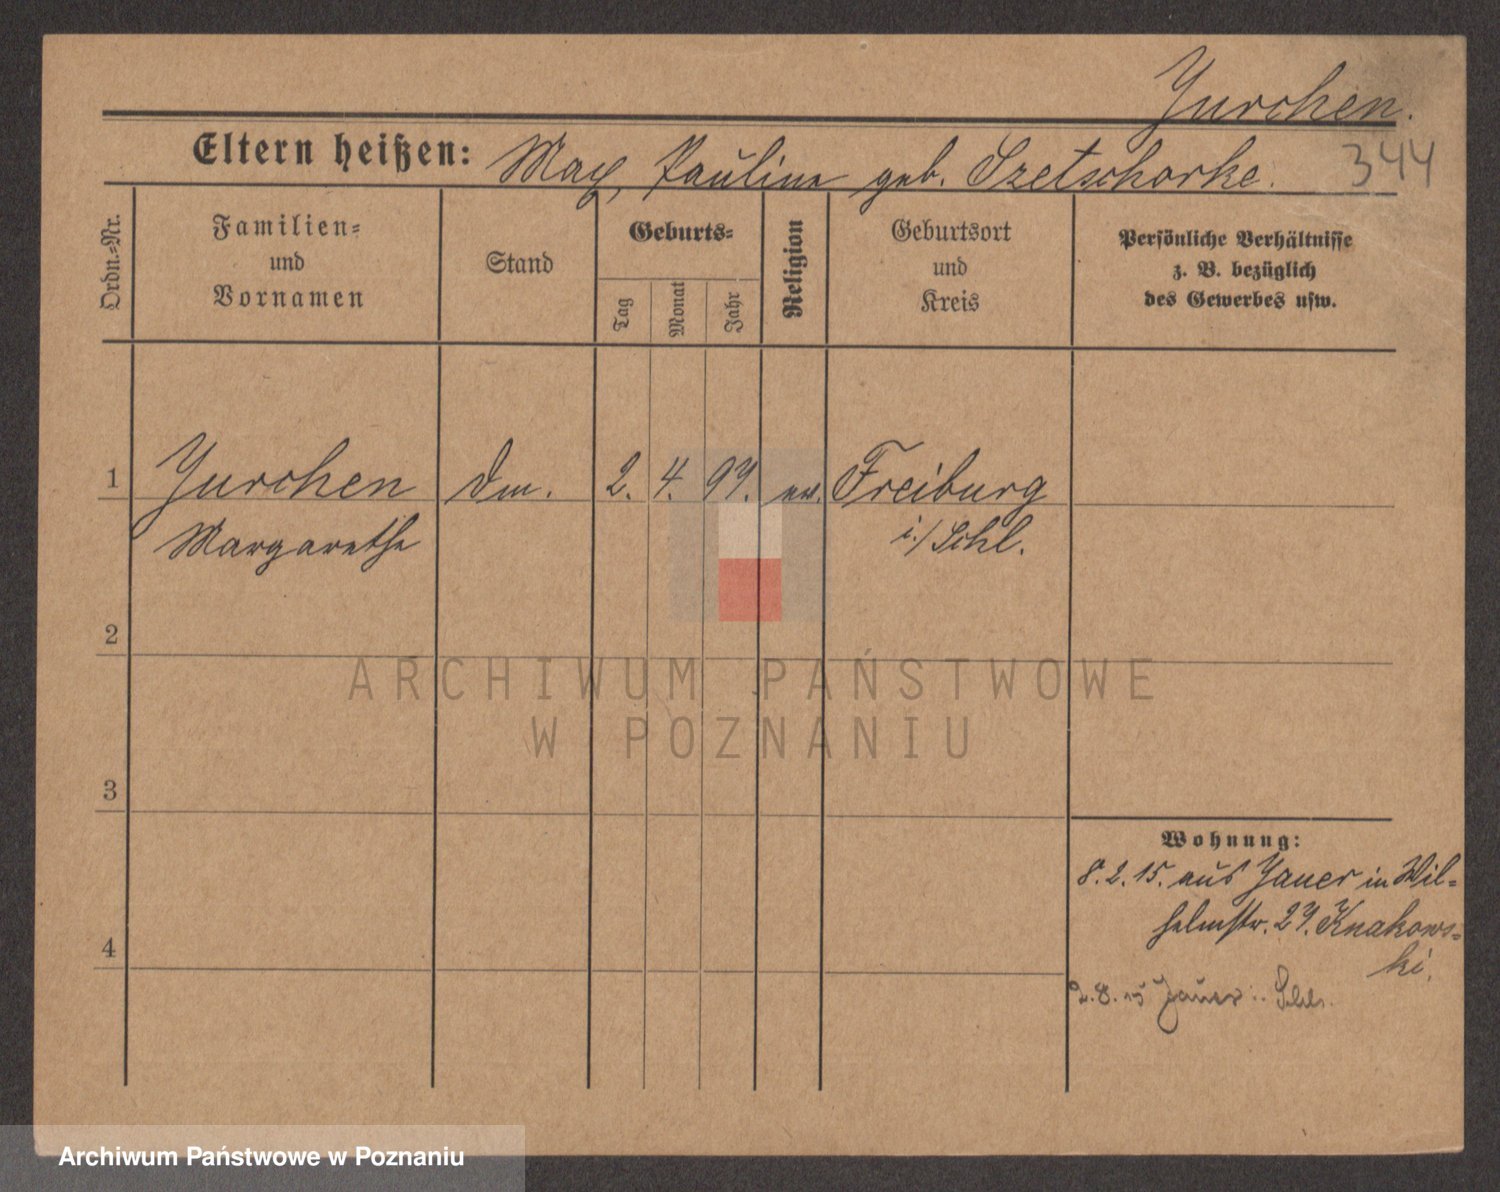 Jurchen.
Eltern heißen: Max, Pauline geb. Szetschorke. 344
Ordn.=Nr.
Familien=
und
Vornamen
Stand
Geburts=
Tag
Monat
Jahr
Religion
Geburtsort
und
Kreis
Persönliche Verhältnisse
z. B. bezüglich
des Gewerbes usw.
1 Jurchen Dm. 2. 4. 97. ev. Freiburg
Margarethe i./Schl.
2
ARCHIWUM PAŃSTWOWE
W POZNANIU
3
Wohnung:
8.2.15. aus Jauer in Wil=
helmstr. 27. Knakows=
ki.
4
2.8.15 Jauer i. Schls.
Archiwum Państwowe w Poznaniu